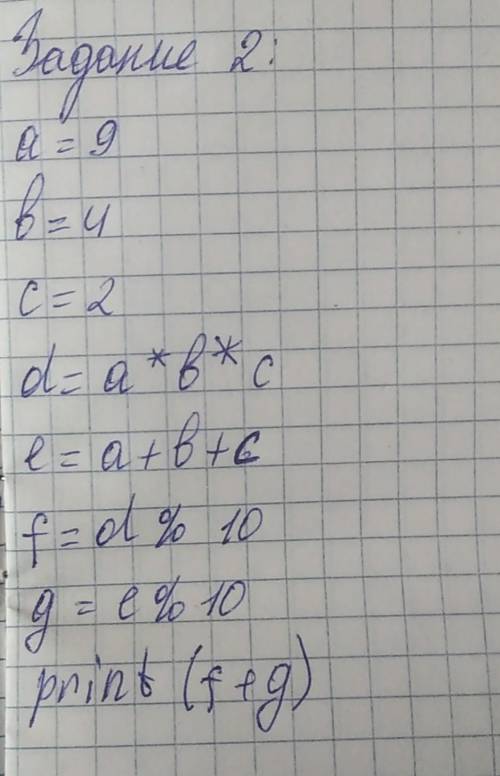 Задание 2:
a = 9
b = 4
c = 2
d = a * b * c
e = a + b + c
f = d % 10
g = e % 10
print (f + g)